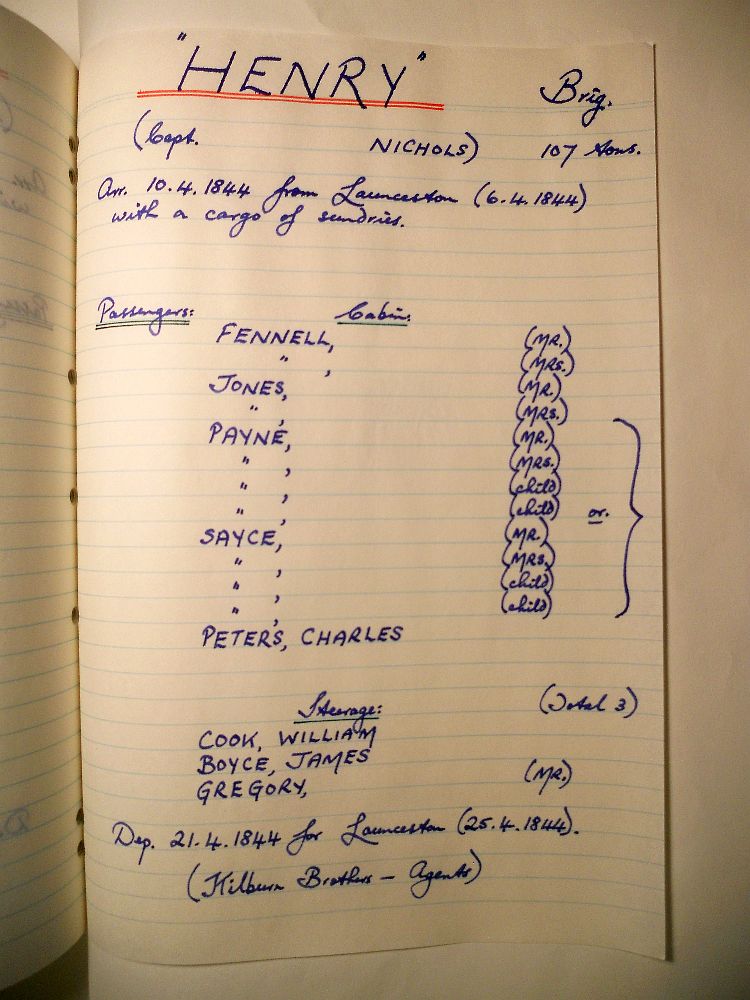 "HENRY" Brig.
(Capt. NICHOLS) 107 tons.
Arr. 10.4.1844 from Launceston (6.4.1844)
with a cargo of sundries.
Passengers: Cabin:
FENNELL, (MR.)
" , (MRS.)
JONES, (MR.)
" , (MRS.)
PAYNE, (MR.)
" , (MRS.)
" , (child)
" , (child) or.
SAYCE, (MR.)
" , (MRS.)
" , (child)
" , (child)
PETERS, CHARLES
Steerage: (Total 3)
COOK, WILLIAM
BOYCE, JAMES
GREGORY, (MR.)
Dep. 21.4.1844 for Launceston (25.4.1844).
(Kilburn Brothers — Agents)